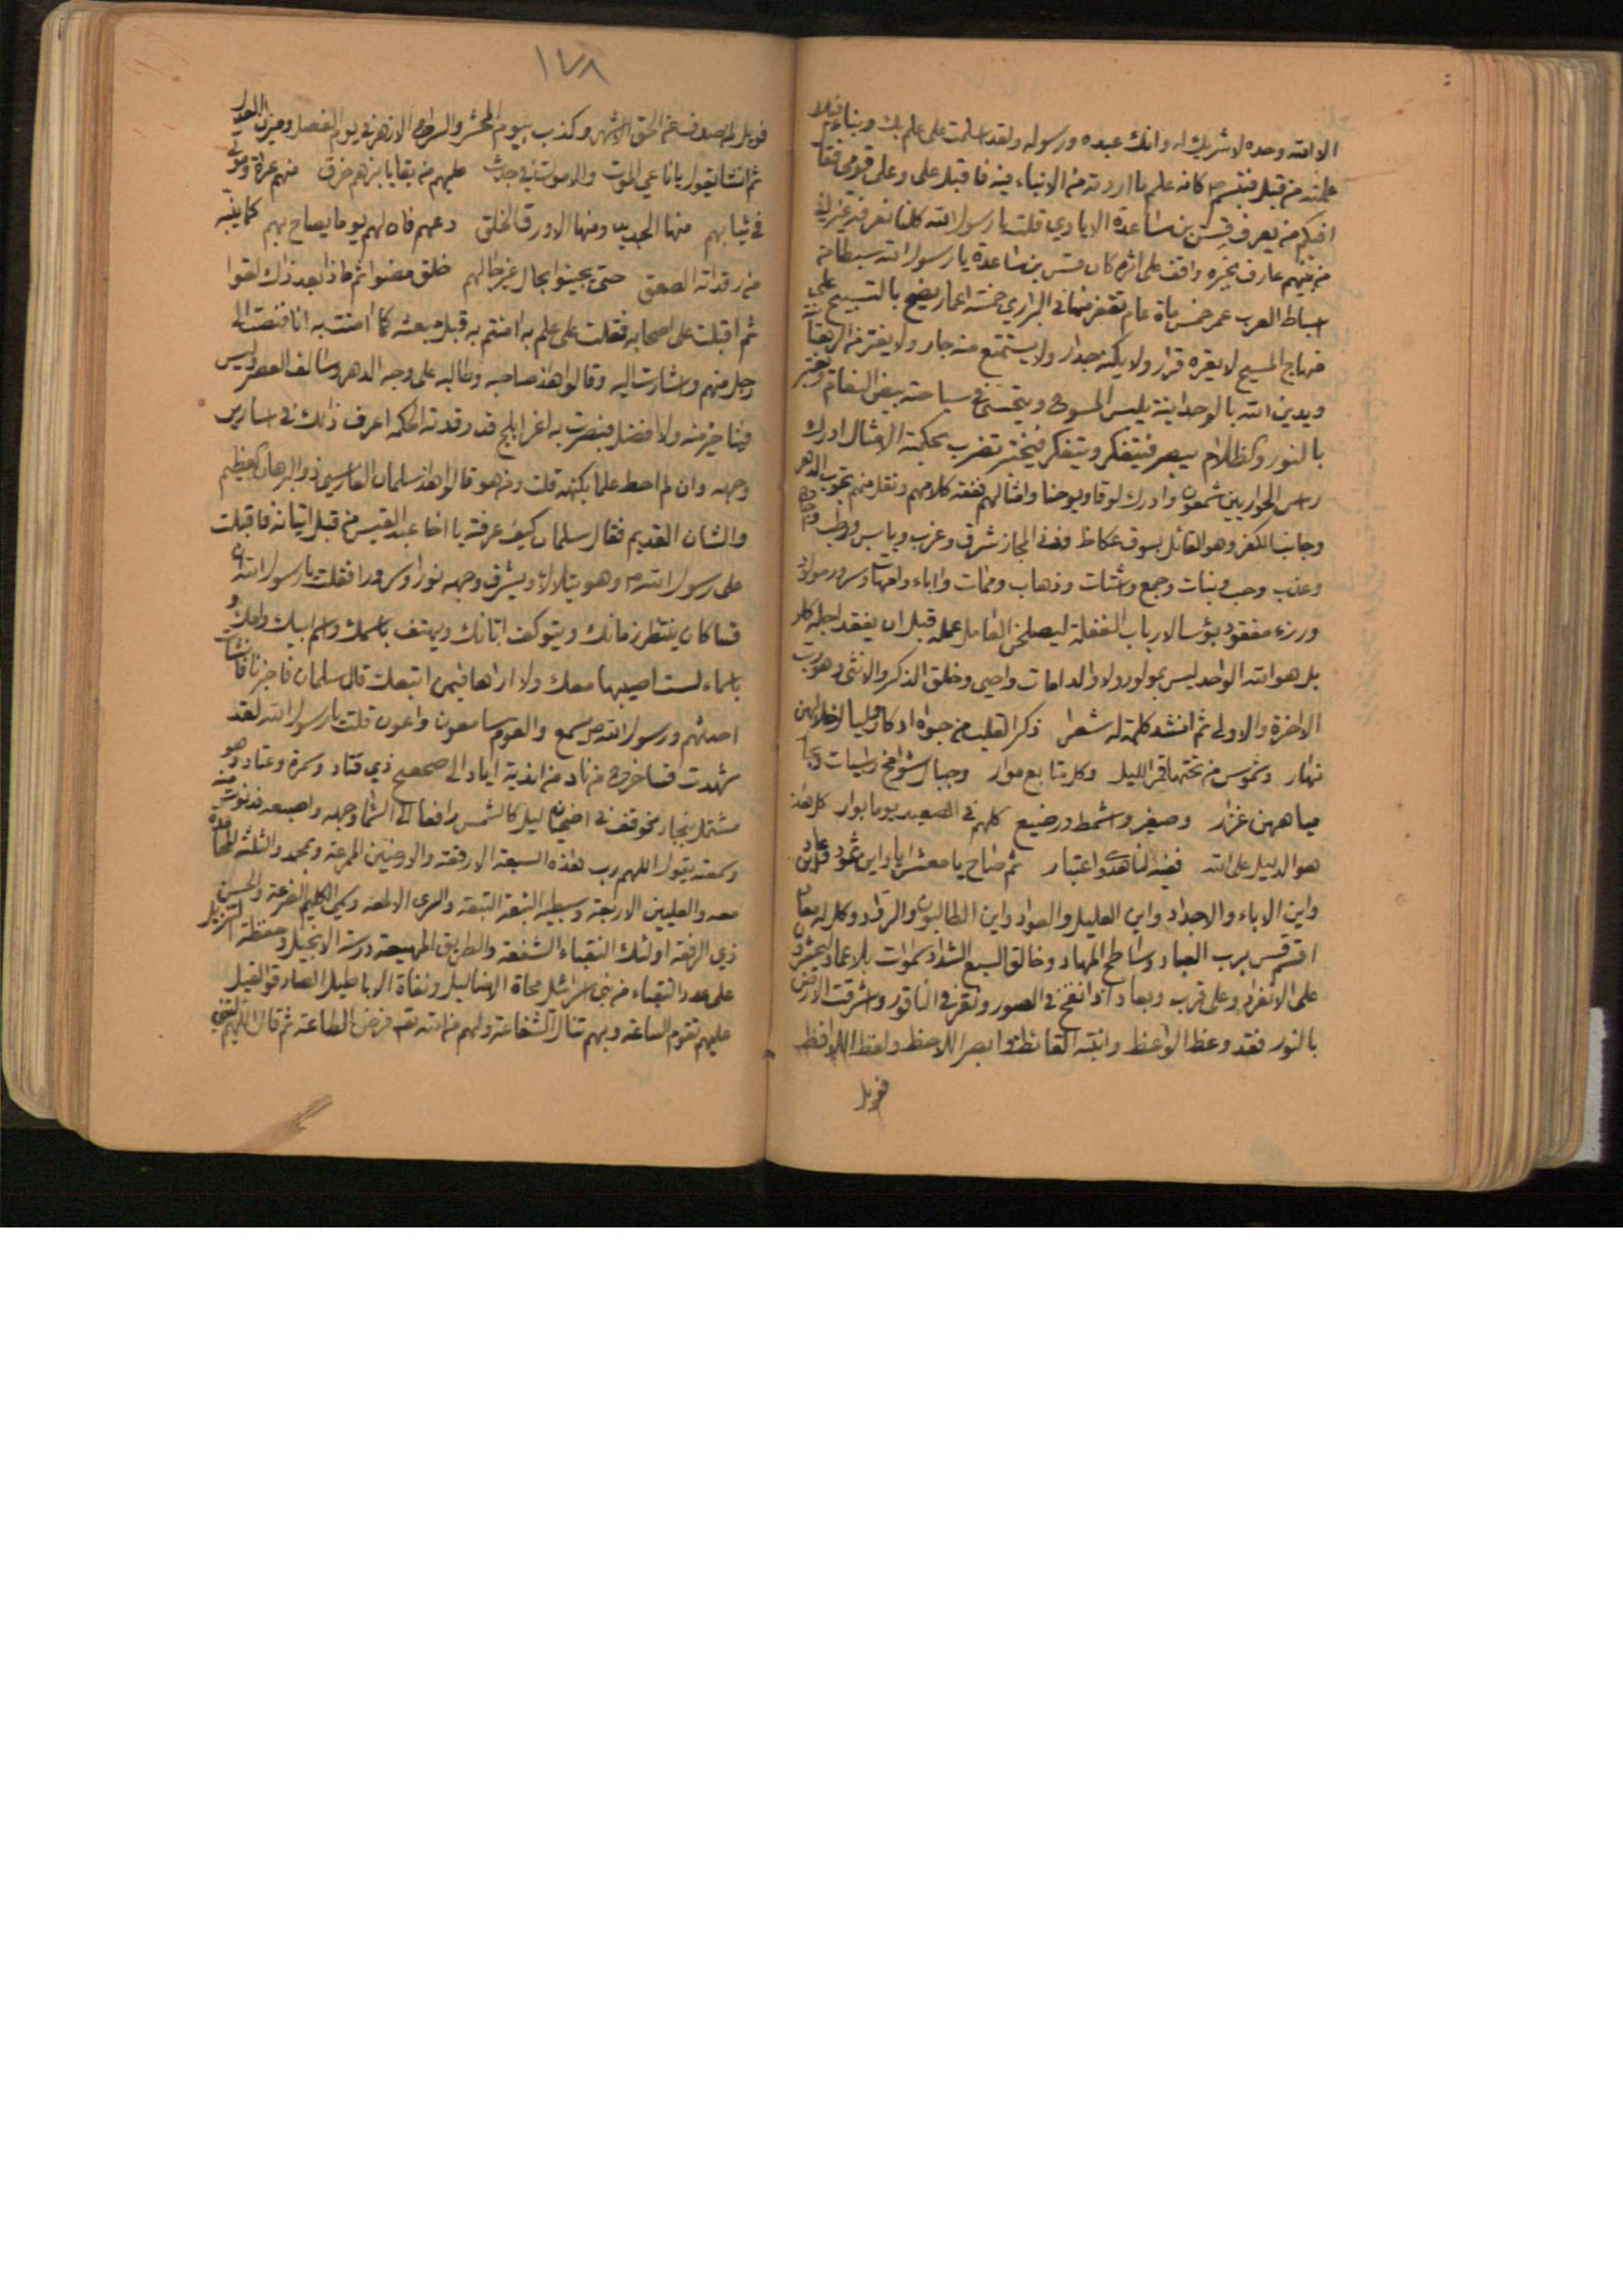 الا الله وحده لا شريك له وانك عبده ورسوله ولقد اسلمت على علم بك وبناء فيك
علمته من قبل فتبسم ص كانه علم ما اردته من الانباء فيه فاقبل علي وعلى قومي فقال
افيكم من يعرف قس بن ساعدة الايادي قلت يا رسول الله كلنا نعرفه غير اني
من بينهم عارف بخبره واقف على اثره كان قس بن ساعدة يا رسول الله سبطا من
اسباط العرب عمر خمس ماة عام تقفر منها في البراري خمسة اعمار يضج بالتسبيح على
منهاج المسيح لا يقره قرار ولا يكنه جدار ولا يستمتع منه جار ولا يفتر من الرهبانية
ويدين الله بالوحدانية يلبس المسوح ويتحسى في سياحته بيض النعام ويعتبر
بالنور والظلام يبصر فيتفكر ويتفكر فيختبر تضرب بحكمته الامثال ادرك
راس الحواريين شمعون وادرك لوقا ويوحنا وامثالهم ففقه كلامهم ونقل منهم تحوب الدهر
وجانب الكفر وهو القائل بسوق عكاظ وذي المجاز شرق وغرب ويابس ورطب واجاج
وعذب وحب ونبات وجمع واشتات وذهاب وممات واباء وامهات وسرور مولود
ورزء مفقود بؤسا لارباب الغفلة ليصلحن العامل عمله قبل ان يفقد اجله كلا
بل هو الله الواحد ليس بمولود ولا والد امات واحيى وخلق الذكر والانثى وهو رب
الاخرة والاولى ثم انشد كلمة له شعرا ذكر القلب من جواه ادكار وليال خلالهن
نهار وشموس من تحتها قمر الليل وكل متابع موار وجبال شوامخ راسيات وبحار
مياههن غزار وصغير واشمط ورضيع كلهم في الصعيد يوما بوار كل هذا
هو الدليل على الله ففيه لنا هدى واعتبار ثم صاح يا معشر اياد اين ثمود واين عاد
واين الاباء والاجداد واين العليل والعواد واين الطالبون والرواد وكل له معاد
اقسم قس برب العباد وساطح المهاد وخالق السبع الشداد سموات بلا عماد ليحشرن
على الانفراد وعلى قرب وبعاد اذا نفخ في الصور ونقر في الناقور واشرقت الارض
بالنور فقد وعظ الواعظ وانتبه القائظ وابصر اللاحظ ولفظ اللافظ
فويل
١٧٨
فويل لمن صدف عن الحق الاشهر وكذب بيوم المحشر والسراج الازهر في يوم الفصل وميزان العدل
ثم انشا يقول يا ناعي الموت والاموات في جدث عليهم من بقايا بزهم خرق منهم عراة وموتى
في ثيابهم منها الجديد ومنها الاورق الخلق دعهم فان لهم يوما يصاح بهم كما ينبه
من رقداته الصعق حتى يجيئوا بحال غير حالهم خلق مضوا ثم ماذا بعد ذاك لقوا
ثم اقبلت على اصحابه فقلت على علم به امنتم به قبل مبعثه كما امنت به انا فنصت الى
رجل منهم واشارت اليه وقالوا هذا صاحبه وطالبه على وجه الدهر وسالف العصر وليس
فينا خير منه ولا افضل فبصرت به اغر ابلج قد وقذته الحكمة اعرف ذلك في اسارير
وجهه وان لم احط علما بكنهه قلت ومن هو قالوا هذا سلمان الفارسي ذو البرهان العظيم
والشان القديم فقال سلمان كيف عرفته يا اخا عبد القيس من قبل اتيانه فاقبلت
على رسول الله ص وهو يتلالا ويشرق وجهه نورا وسرورا فقلت يا رسول الله ان
قسا كان ينتظر زمانك ويتوكف ابانك ويهتف باسمك واسم ابيك وامك و
باسماء لست اصيبها معك ولا اراها فيمن اتبعك قال سلمان فاخبرنا فانشات
احدثهم ورسول الله ص يسمع والقوم سامعون واعون قلت يا رسول الله لقد
شهدت قسا خرج من ناد من اندية اياد الى صحصح ذي قتاد وسمرة وعتاد وهو
مشتمل بنجاد فوقف في اضحيان ليل كالشمس رافعا الى السماء وجهه واصبعه فدنوت منه
وسمعته يقول اللهم رب هذه السبعة الارقعة والارضين الممرعة وبمحمد والثلثة المحامدة
معه والعليين الاربعة وسبطيه النبعة التبعة والسري الالمعة وسمي الكليم الضرعة والحسن
ذي الرفعة اولئك النقباء الشفعة والطريق المهيعة درسة الانجيل وحفظة التنزيل
على عدد النقباء من بني اسرائيل محاة الاضاليل ونفاة الاباطيل الصادقو القيل
عليهم تقوم الساعة وبهم تنال الشفاعة ولهم من الله تعه فرض الطاعة ثم قال اللهم ليتني